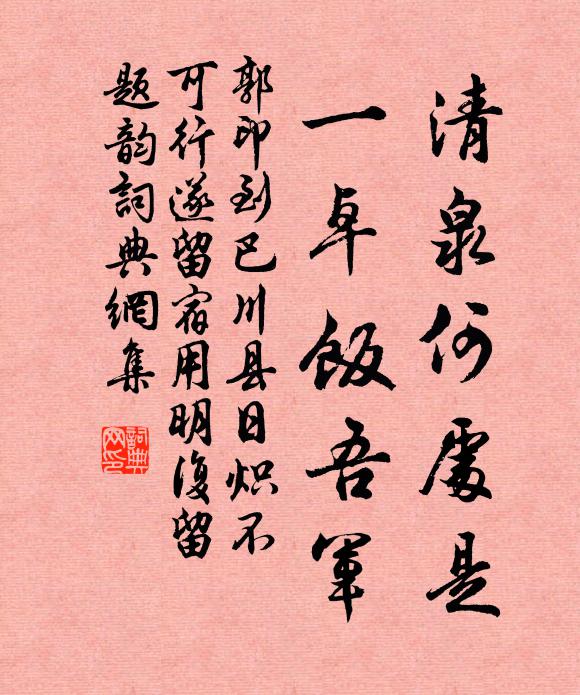 清泉何處是
一卓飯吾軍
郭印到巴川县日炽不
可行遂留宿用明復留
题韵詞典網集
詞典
网印